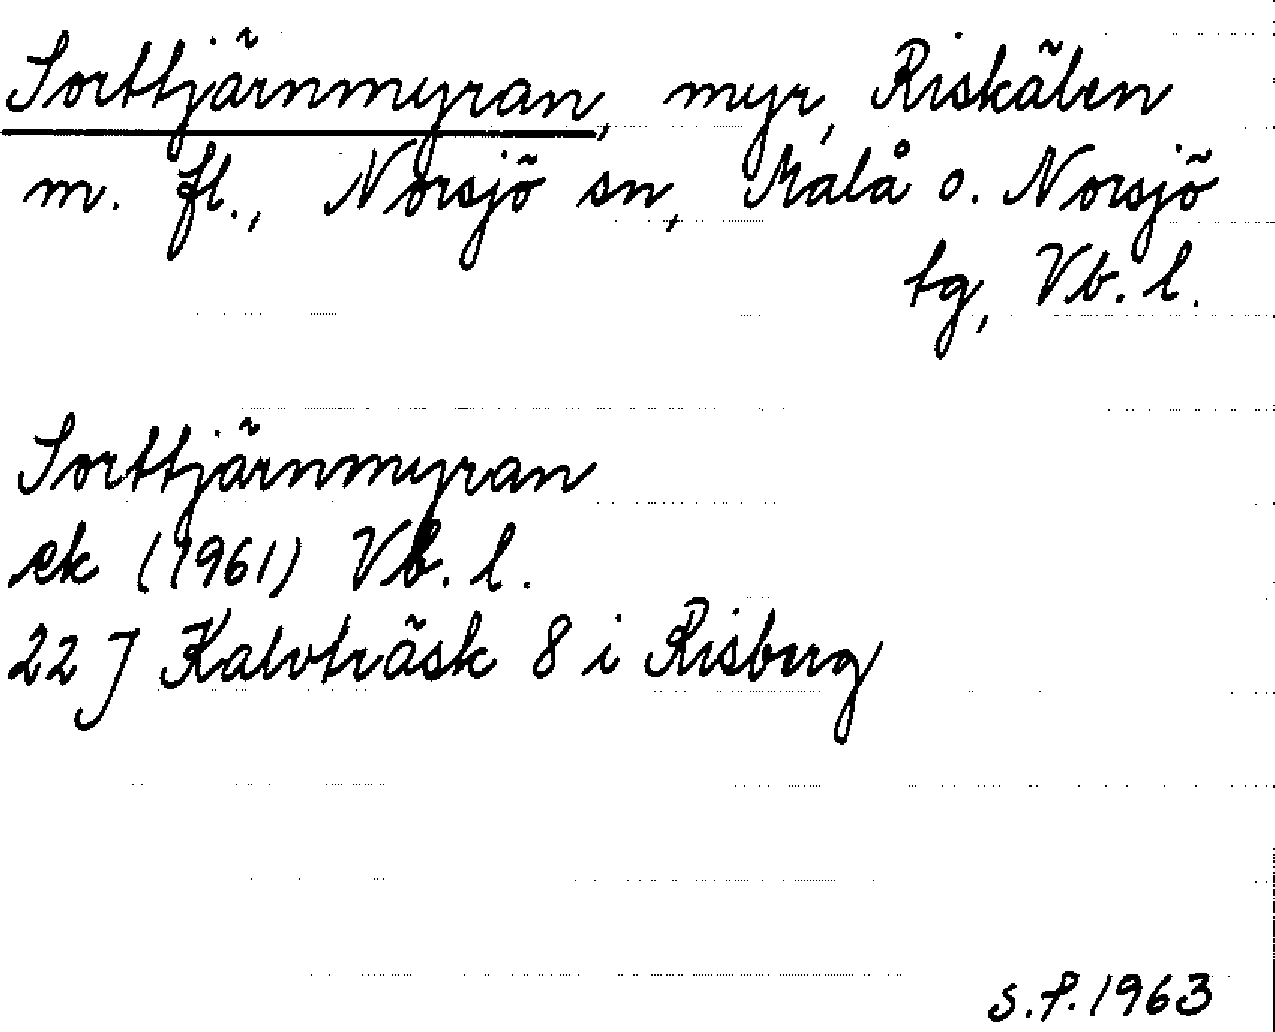 Sorttjärnmyran, myr, Riskälen
m. fl., Norsjö sn, Malå o. Norsjö
tg, Vb. l.
Sorttjärnmyran
ek (1961) Vb. l.
22 J Kalvträsk 8 i Risberg
S.P. 1963